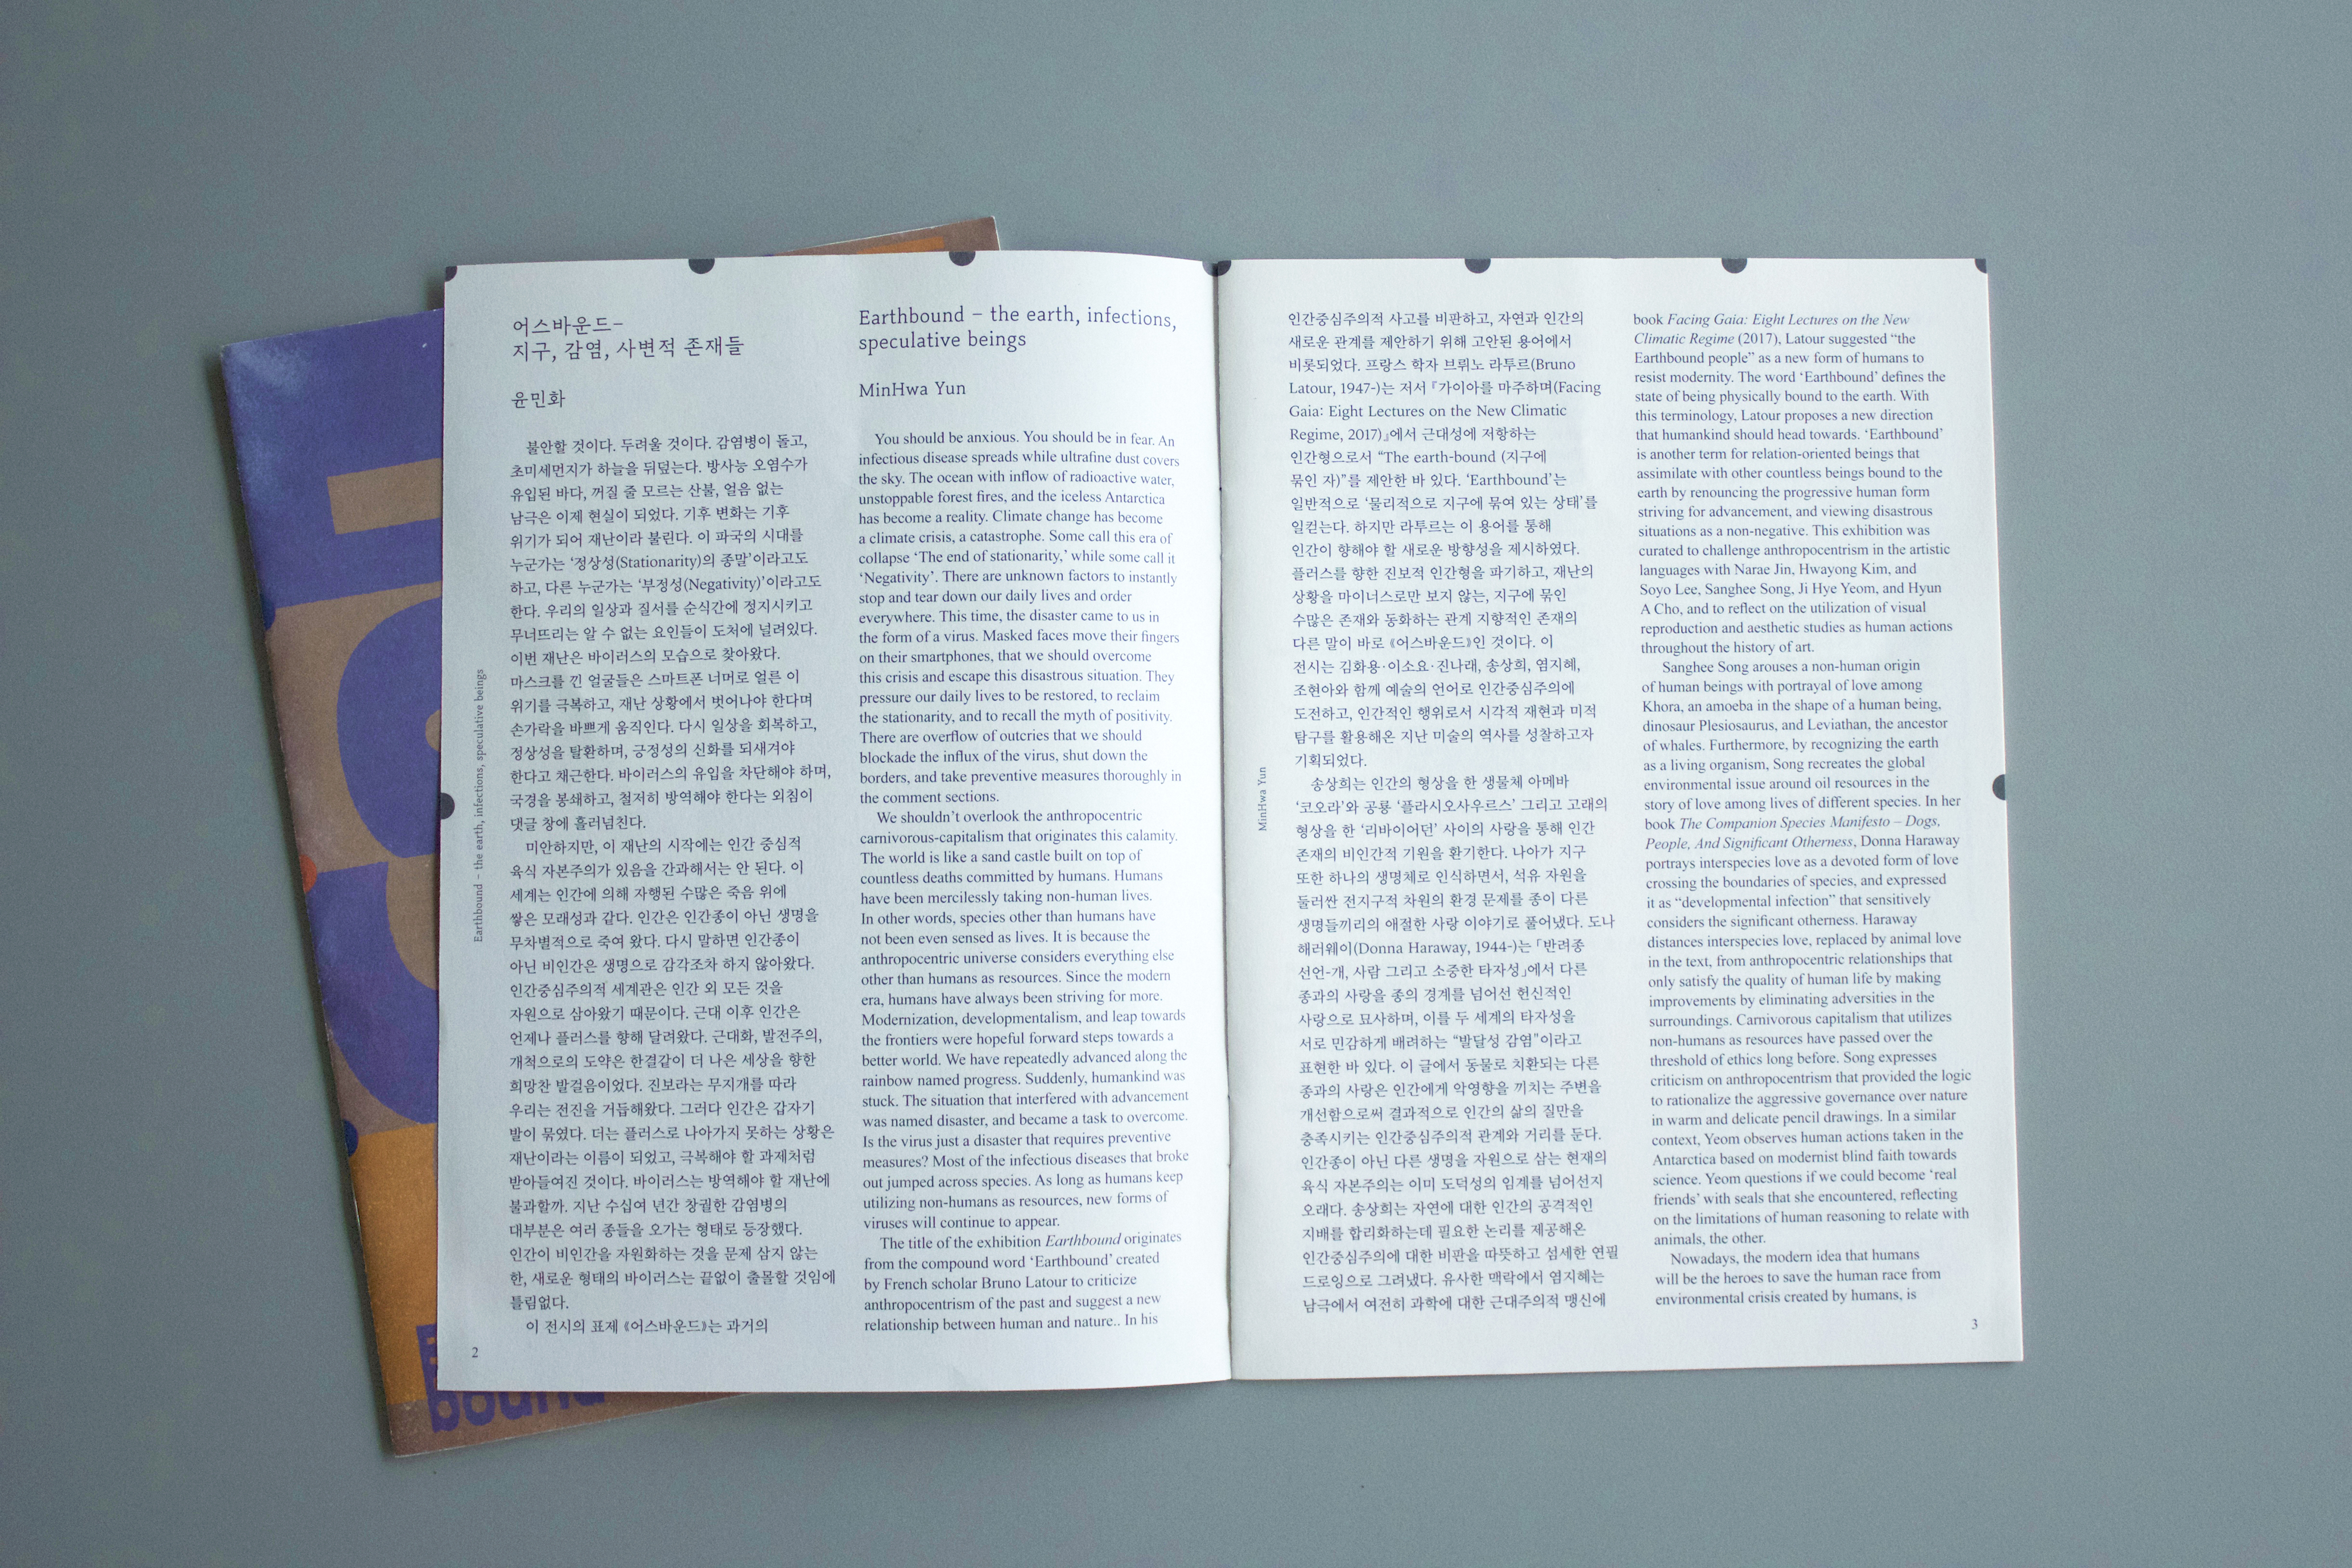 어스바운드–
지구, 감염, 사변적 존재들
윤민화
불안할 것이다. 두려울 것이다. 감염병이 돌고,
초미세먼지가 하늘을 뒤덮는다. 방사능 오염수가
유입된 바다, 꺼질 줄 모르는 산불, 얼음 없는
남극은 이제 현실이 되었다. 기후 변화는 기후
위기가 되어 재난이라 불린다. 이 파국의 시대를
누군가는 ‘정상성(Stationarity)의 종말’이라고도
하고, 다른 누군가는 ‘부정성(Negativity)’이라고도
한다. 우리의 일상과 질서를 순식간에 정지시키고
무너뜨리는 알 수 없는 요인들이 도처에 널려있다.
이번 재난은 바이러스의 모습으로 찾아왔다.
마스크를 낀 얼굴들은 스마트폰 너머로 얼른 이
위기를 극복하고, 재난 상황에서 벗어나야 한다며
손가락을 바쁘게 움직인다. 다시 일상을 회복하고,
정상성을 탈환하며, 긍정성의 신화를 되새겨야
한다고 채근한다. 바이러스의 유입을 차단해야 하며,
국경을 봉쇄하고, 철저히 방역해야 한다는 외침이
댓글 창에 흘러넘친다.
미안하지만, 이 재난의 시작에는 인간 중심적
육식 자본주의가 있음을 간과해서는 안 된다. 이
세계는 인간에 의해 자행된 수많은 죽음 위에
쌓은 모래성과 같다. 인간은 인간종이 아닌 생명을
무차별적으로 죽여 왔다. 다시 말하면 인간종이
아닌 비인간은 생명으로 감각조차 하지 않아왔다.
인간중심주의적 세계관은 인간 외 모든 것을
자원으로 삼아왔기 때문이다. 근대 이후 인간은
언제나 플러스를 향해 달려왔다. 근대화, 발전주의,
개척으로의 도약은 한결같이 더 나은 세상을 향한
희망찬 발걸음이었다. 진보라는 무지개를 따라
우리는 전진을 거듭해왔다. 그러다 인간은 갑자기
발이 묶였다. 더는 플러스로 나아가지 못하는 상황은
재난이라는 이름이 되었고, 극복해야 할 과제처럼
받아들여진 것이다. 바이러스는 방역해야 할 재난에
불과할까. 지난 수십여 년간 창궐한 감염병의
대부분은 여러 종들을 오가는 형태로 등장했다.
인간이 비인간을 자원화하는 것을 문제 삼지 않는
한, 새로운 형태의 바이러스는 끝없이 출몰할 것임에
틀림없다.
이 전시의 표제 《어스바운드》는 과거의
Earthbound – the earth, infections,
speculative beings
MinHwa Yun
You should be anxious. You should be in fear. An
infectious disease spreads while ultrafine dust covers
the sky. The ocean with inflow of radioactive water,
unstoppable forest fires, and the iceless Antarctica
has become a reality. Climate change has become
a climate crisis, a catastrophe. Some call this era of
collapse ‘The end of stationarity,’ while some call it
‘Negativity’. There are unknown factors to instantly
stop and tear down our daily lives and order
everywhere. This time, the disaster came to us in
the form of a virus. Masked faces move their fingers
on their smartphones, that we should overcome
this crisis and escape this disastrous situation. They
pressure our daily lives to be restored, to reclaim
the stationarity, and to recall the myth of positivity.
There are overflow of outcries that we should
blockade the influx of the virus, shut down the
borders, and take preventive measures thoroughly in
the comment sections.
We shouldn’t overlook the anthropocentric
carnivorous-capitalism that originates this calamity.
The world is like a sand castle built on top of
countless deaths committed by humans. Humans
have been mercilessly taking non-human lives.
In other words, species other than humans have
not been even sensed as lives. It is because the
anthropocentric universe considers everything else
other than humans as resources. Since the modern
era, humans have always been striving for more.
Modernization, developmentalism, and leap towards
the frontiers were hopeful forward steps towards a
better world. We have repeatedly advanced along the
rainbow named progress. Suddenly, humankind was
stuck. The situation that interfered with advancement
was named disaster, and became a task to overcome.
Is the virus just a disaster that requires preventive
measures? Most of the infectious diseases that broke
out jumped across species. As long as humans keep
utilizing non-humans as resources, new forms of
viruses will continue to appear.
The title of the exhibition Earthbound originates
from the compound word ‘Earthbound’ created
by French scholar Bruno Latour to criticize
anthropocentrism of the past and suggest a new
relationship between human and nature.. In his
Earthbound – the earth, infections, speculative beings
2
인간중심주의적 사고를 비판하고, 자연과 인간의
새로운 관계를 제안하기 위해 고안된 용어에서
비롯되었다. 프랑스 학자 브뤼노 라투르(Bruno
Latour, 1947-)는 저서 『가이아를 마주하며(Facing
Gaia: Eight Lectures on the New Climatic
Regime, 2017)』에서 근대성에 저항하는
인간형으로서 “The earth-bound (지구에
묶인 자)”를 제안한 바 있다. ‘Earthbound’는
일반적으로 ‘물리적으로 지구에 묶여 있는 상태’를
일컫는다. 하지만 라투르는 이 용어를 통해
인간이 향해야 할 새로운 방향성을 제시하였다.
플러스를 향한 진보적 인간형을 파기하고, 재난의
상황을 마이너스로만 보지 않는, 지구에 묶인
수많은 존재와 동화하는 관계 지향적인 존재의
다른 말이 바로 《어스바운드》인 것이다. 이
전시는 김화용·이소요·진나래, 송상희, 염지혜,
조현아와 함께 예술의 언어로 인간중심주의에
도전하고, 인간적인 행위로서 시각적 재현과 미적
탐구를 활용해온 지난 미술의 역사를 성찰하고자
기획되었다.
송상희는 인간의 형상을 한 생물체 아메바
‘코오라’와 공룡 ‘플라시오사우르스’ 그리고 고래의
형상을 한 ‘리바이어던’ 사이의 사랑을 통해 인간
존재의 비인간적 기원을 환기한다. 나아가 지구
또한 하나의 생명체로 인식하면서, 석유 자원을
둘러싼 전지구적 차원의 환경 문제를 종이 다른
생명들끼리의 애절한 사랑 이야기로 풀어냈다. 도나
해러웨이(Donna Haraway, 1944-)는 「반려종
선언-개, 사람 그리고 소중한 타자성」에서 다른
종과의 사랑을 종의 경계를 넘어선 헌신적인
사랑으로 묘사하며, 이를 두 세계의 타자성을
서로 민감하게 배려하는 “발달성 감염”이라고
표현한 바 있다. 이 글에서 동물로 치환되는 다른
종과의 사랑은 인간에게 악영향을 끼치는 주변을
개선함으로써 결과적으로 인간의 삶의 질만을
충족시키는 인간중심주의적 관계와 거리를 둔다.
인간종이 아닌 다른 생명을 자원으로 삼는 현재의
육식 자본주의는 이미 도덕성의 임계를 넘어선지
오래다. 송상희는 자연에 대한 인간의 공격적인
지배를 합리화하는데 필요한 논리를 제공해온
인간중심주의에 대한 비판을 따뜻하고 섬세한 연필
드로잉으로 그려냈다. 유사한 맥락에서 염지혜는
남극에서 여전히 과학에 대한 근대주의적 맹신에
book Facing Gaia: Eight Lectures on the New
Climatic Regime (2017), Latour suggested “the
Earthbound people” as a new form of humans to
resist modernity. The word ‘Earthbound’ defines the
state of being physically bound to the earth. With
this terminology, Latour proposes a new direction
that humankind should head towards. ‘Earthbound’
is another term for relation-oriented beings that
assimilate with other countless beings bound to the
earth by renouncing the progressive human form
striving for advancement, and viewing disastrous
situations as a non-negative. This exhibition was
curated to challenge anthropocentrism in the artistic
languages with Narae Jin, Hwayong Kim, and
Soyo Lee, Sanghee Song, Ji Hye Yeom, and Hyun
A Cho, and to reflect on the utilization of visual
reproduction and aesthetic studies as human actions
throughout the history of art.
Sanghee Song arouses a non-human origin
of human beings with portrayal of love among
Khora, an amoeba in the shape of a human being,
dinosaur Plesiosaurus, and Leviathan, the ancestor
of whales. Furthermore, by recognizing the earth
as a living organism, Song recreates the global
environmental issue around oil resources in the
story of love among lives of different species. In her
book The Companion Species Manifesto – Dogs,
People, And Significant Otherness, Donna Haraway
portrays interspecies love as a devoted form of love
crossing the boundaries of species, and expressed
it as “developmental infection” that sensitively
considers the significant otherness. Haraway
distances interspecies love, replaced by animal love
in the text, from anthropocentric relationships that
only satisfy the quality of human life by making
improvements by eliminating adversities in the
surroundings. Carnivorous capitalism that utilizes
non-humans as resources have passed over the
threshold of ethics long before. Song expresses
criticism on anthropocentrism that provided the logic
to rationalize the aggressive governance over nature
in warm and delicate pencil drawings. In a similar
context, Yeom observes human actions taken in the
Antarctica based on modernist blind faith towards
science. Yeom questions if we could become ‘real
friends’ with seals that she encountered, reflecting
on the limitations of human reasoning to relate with
animals, the other.
Nowadays, the modern idea that humans
will be the heroes to save the human race from
environmental crisis created by humans, is
MinHwa Yun
3
bound